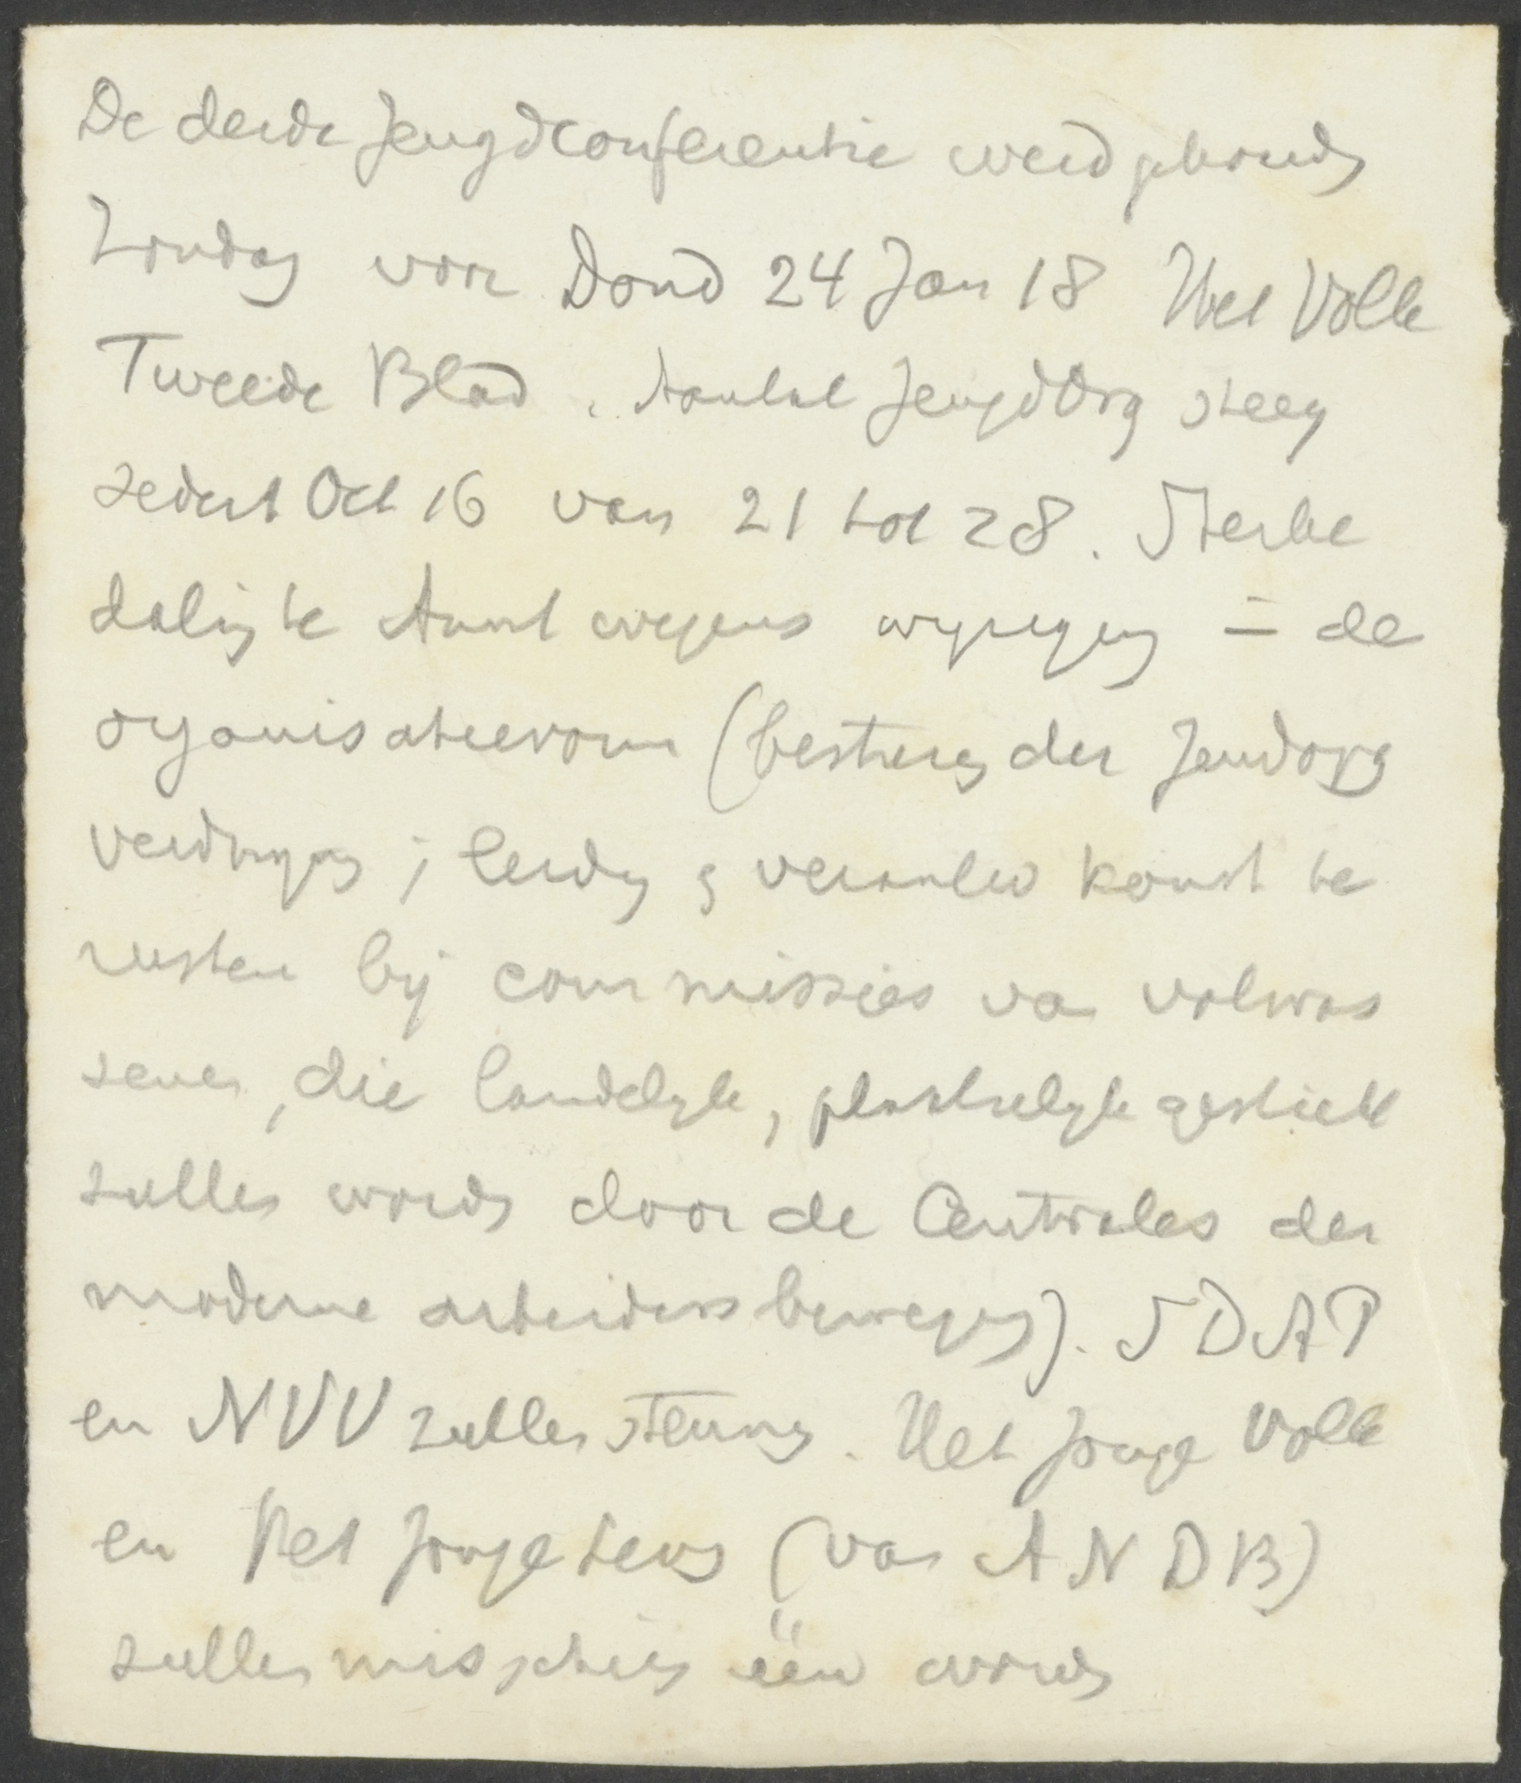 De derde Jeugdconferentie werd gehouden
Zondag voor Dond 24 Jan 18 Het Volk
Tweede Blad. Aantal JeugdOrg steeg
sedert Oct 16 van 21 tot 28. Sterke
daling te Amst wegens wijziging in de
organisatievorm (besturen der Jeudorg
verdwijnen; leiding en verantw komt te
rusten bij commissies van volwas
senen, die landelijk, plaatselijk gesticht
zullen worden door de Centrales der
moderne arbeidersbeweging). SDAP
en NVV zullen steunen. Het Jonge Volk
en Het Jonge Leven (van ANDB)
zullen misschien één worden